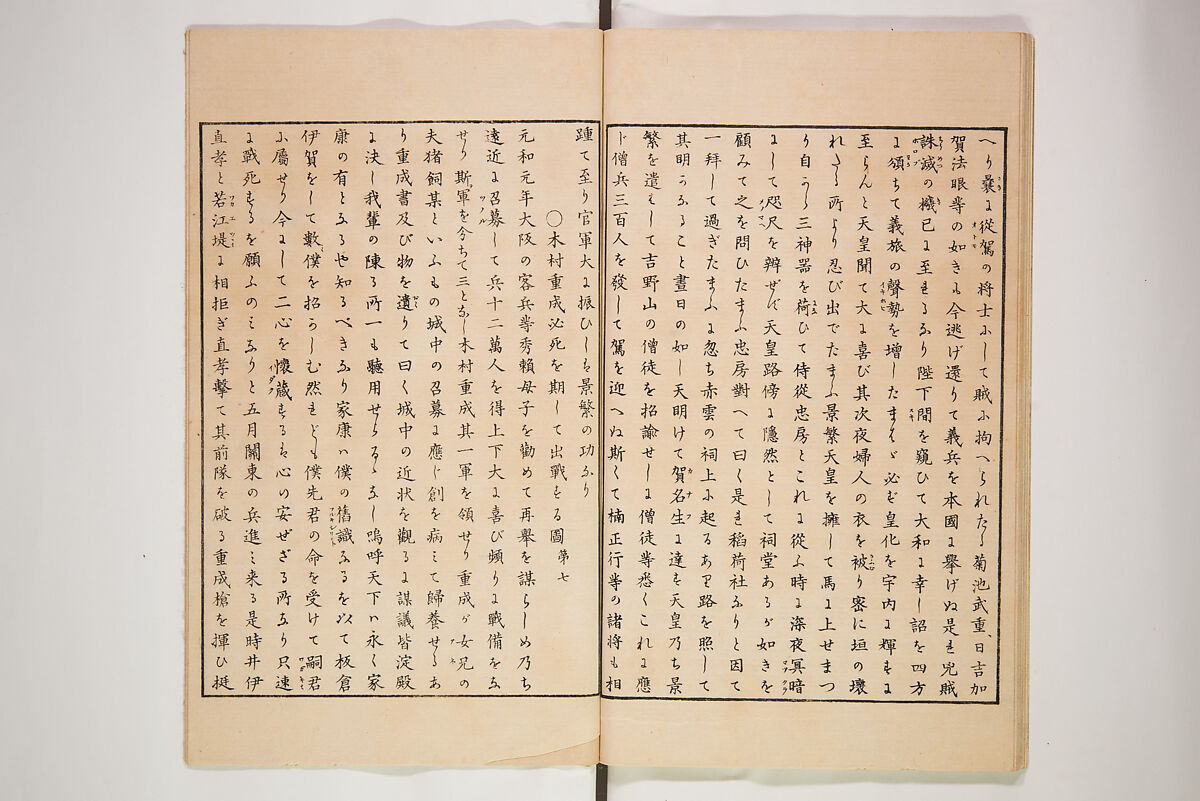 へり曩に從駕の将士にして賊に拘へられたる菊池武重、日吉加
賀法眼等の如きも今逃げ還りて義兵を本國に舉げぬ是れ兇賊
誅滅の機已に至れるなり陛下間を窺ひて大和に幸し詔を四方
に頒ちて義旅の聲勢を増したまはゞ必ず皇化を宇内に輝すに
至らんと天皇聞て大に喜び其次夜婦人の衣を被り密に垣の壞
れたる所より忍び出でたまふ景繁天皇を擁して馬に上せまつ
り自から三神器を荷ひて侍從忠房とこれに從ふ時に深夜冥暗
にして咫尺を辨ぜず天皇路傍に隱然として祠堂あるが如きを
顧みて之を問ひたまふ忠房對へて曰く是れ稻荷社なりと因て
一拜して過ぎたまふに忽ち赤雲の祠上に起るあり路を照して
其明かなること晝日の如し天明けて賀名生に達す天皇乃ち景
繁を遣はして吉野山の僧徒を招諭せしに僧徒等悉くこれに應
ド僧兵三百人を發して駕を迎へぬ斯くて楠正行等の諸将も相
踵て至り官軍大に振ひしは景繁の功なり
〇木村重成必死を期して出戰する圖 第七
元和元年大阪の客兵等秀賴母子を勸めて再舉を謀らしめ乃ち
遠近に召募して兵十二萬人を得上下大に喜び頻りに戰備をな
せり斯軍を分ちて三となし木村重成其一軍を領せり重成が女兄の
夫猪飼某といふもの城中の召募に應じ創を病みて歸養せしあ
り重成書及び物を遺りて曰く城中の近状を觀るに謀議皆淀殿
に決し我輩の陳る所一も聽用せらるゝなし嗚呼天下ハ永く家
康の有となるや知るべきなり家康ハ僕の舊識なるを以て板倉
伊賀をして數僕を招かしむ然れども僕先君の命を受けて嗣君
に屬せり今にして二心を懷藏するは心の安ぜざる所なり只速
に戰死するを願ふのみなりと五月關東の兵進み来る是時井伊
直孝と若江堤に相拒ぎ直孝擊て其前隊を破る重成槍を揮ひ挺